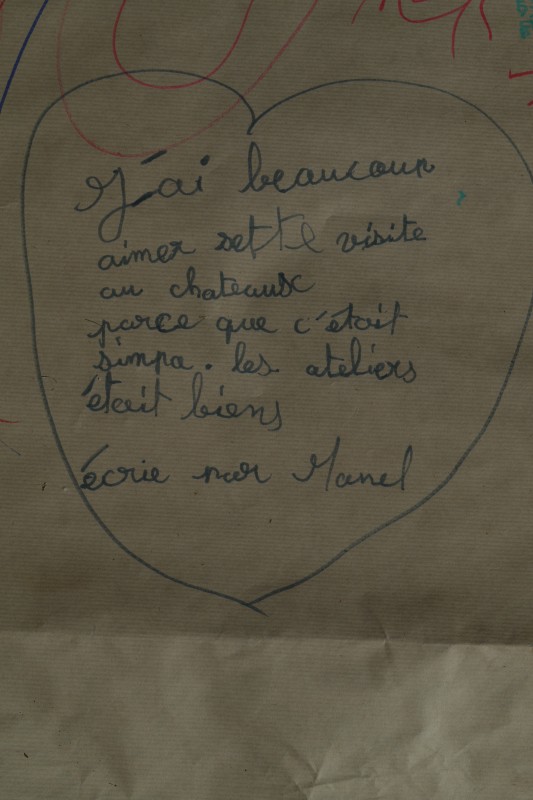 J'ai beaucoup
aimer sette visite
au chateaux
parce que c'était
simpa. les ateliers
était biens
écrie par Manel